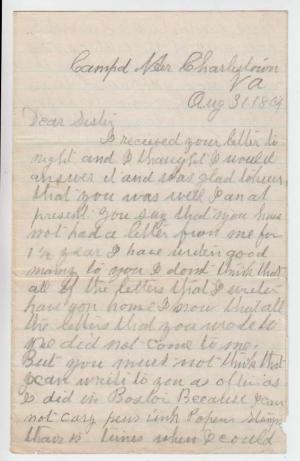 Campd Near Charlestown
Va
Aug 31 1864
Dear Sister
I received your letter to
night and I thaught I would
answer it and was glad to hear
that you was well I am at
present You say that you have
not had a letter from me for
1/2 year I have writen good
meny to you I dont think that
all of the letters that I writen
have gon home I now that all
the letters that you wrote to
me did not come to me.
But you must not think that
I can write to you as often as
I did in Boston Because I can
not cary pens ink Papers Stamps
thair is times when I could